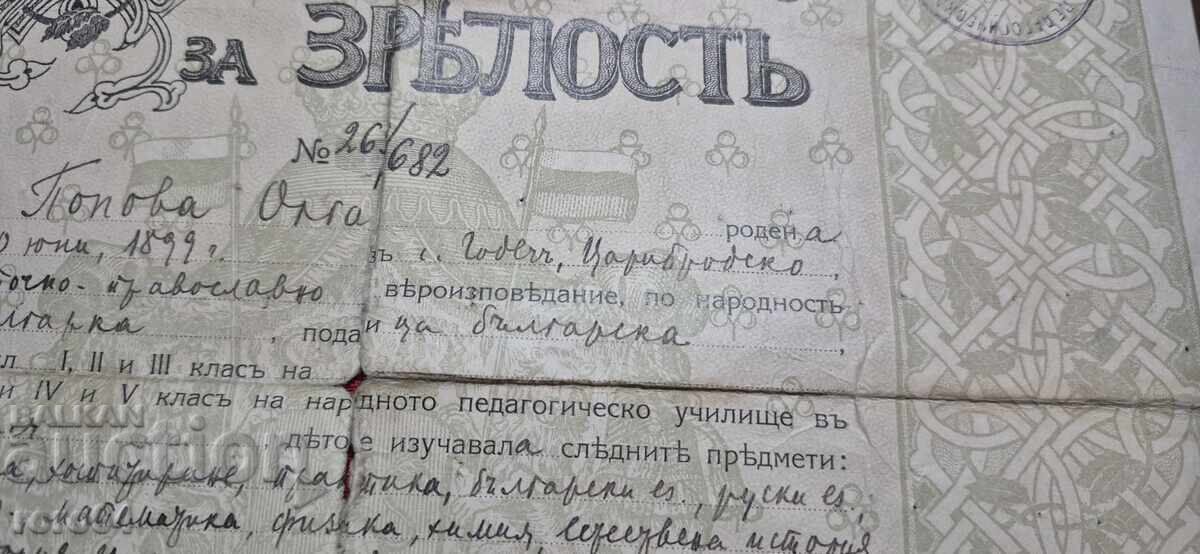 ЗА ЗРѢЛОСТЬ
№ 26/682
Попова Олга родена
юни, 1899 г. въ с. Годечъ, Царибродско,
точно-православно вѣроизповѣдание, по народность
лгарка, поданица българска,
I, II и III класъ на
и IV и V класъ на народното педагогическо училище въ
дѣто е изучавала слѣднитѣ прѣдмети:
практика, български ез., руски ез.,
математика, физика, химия, естествена история
BALKAN
auction